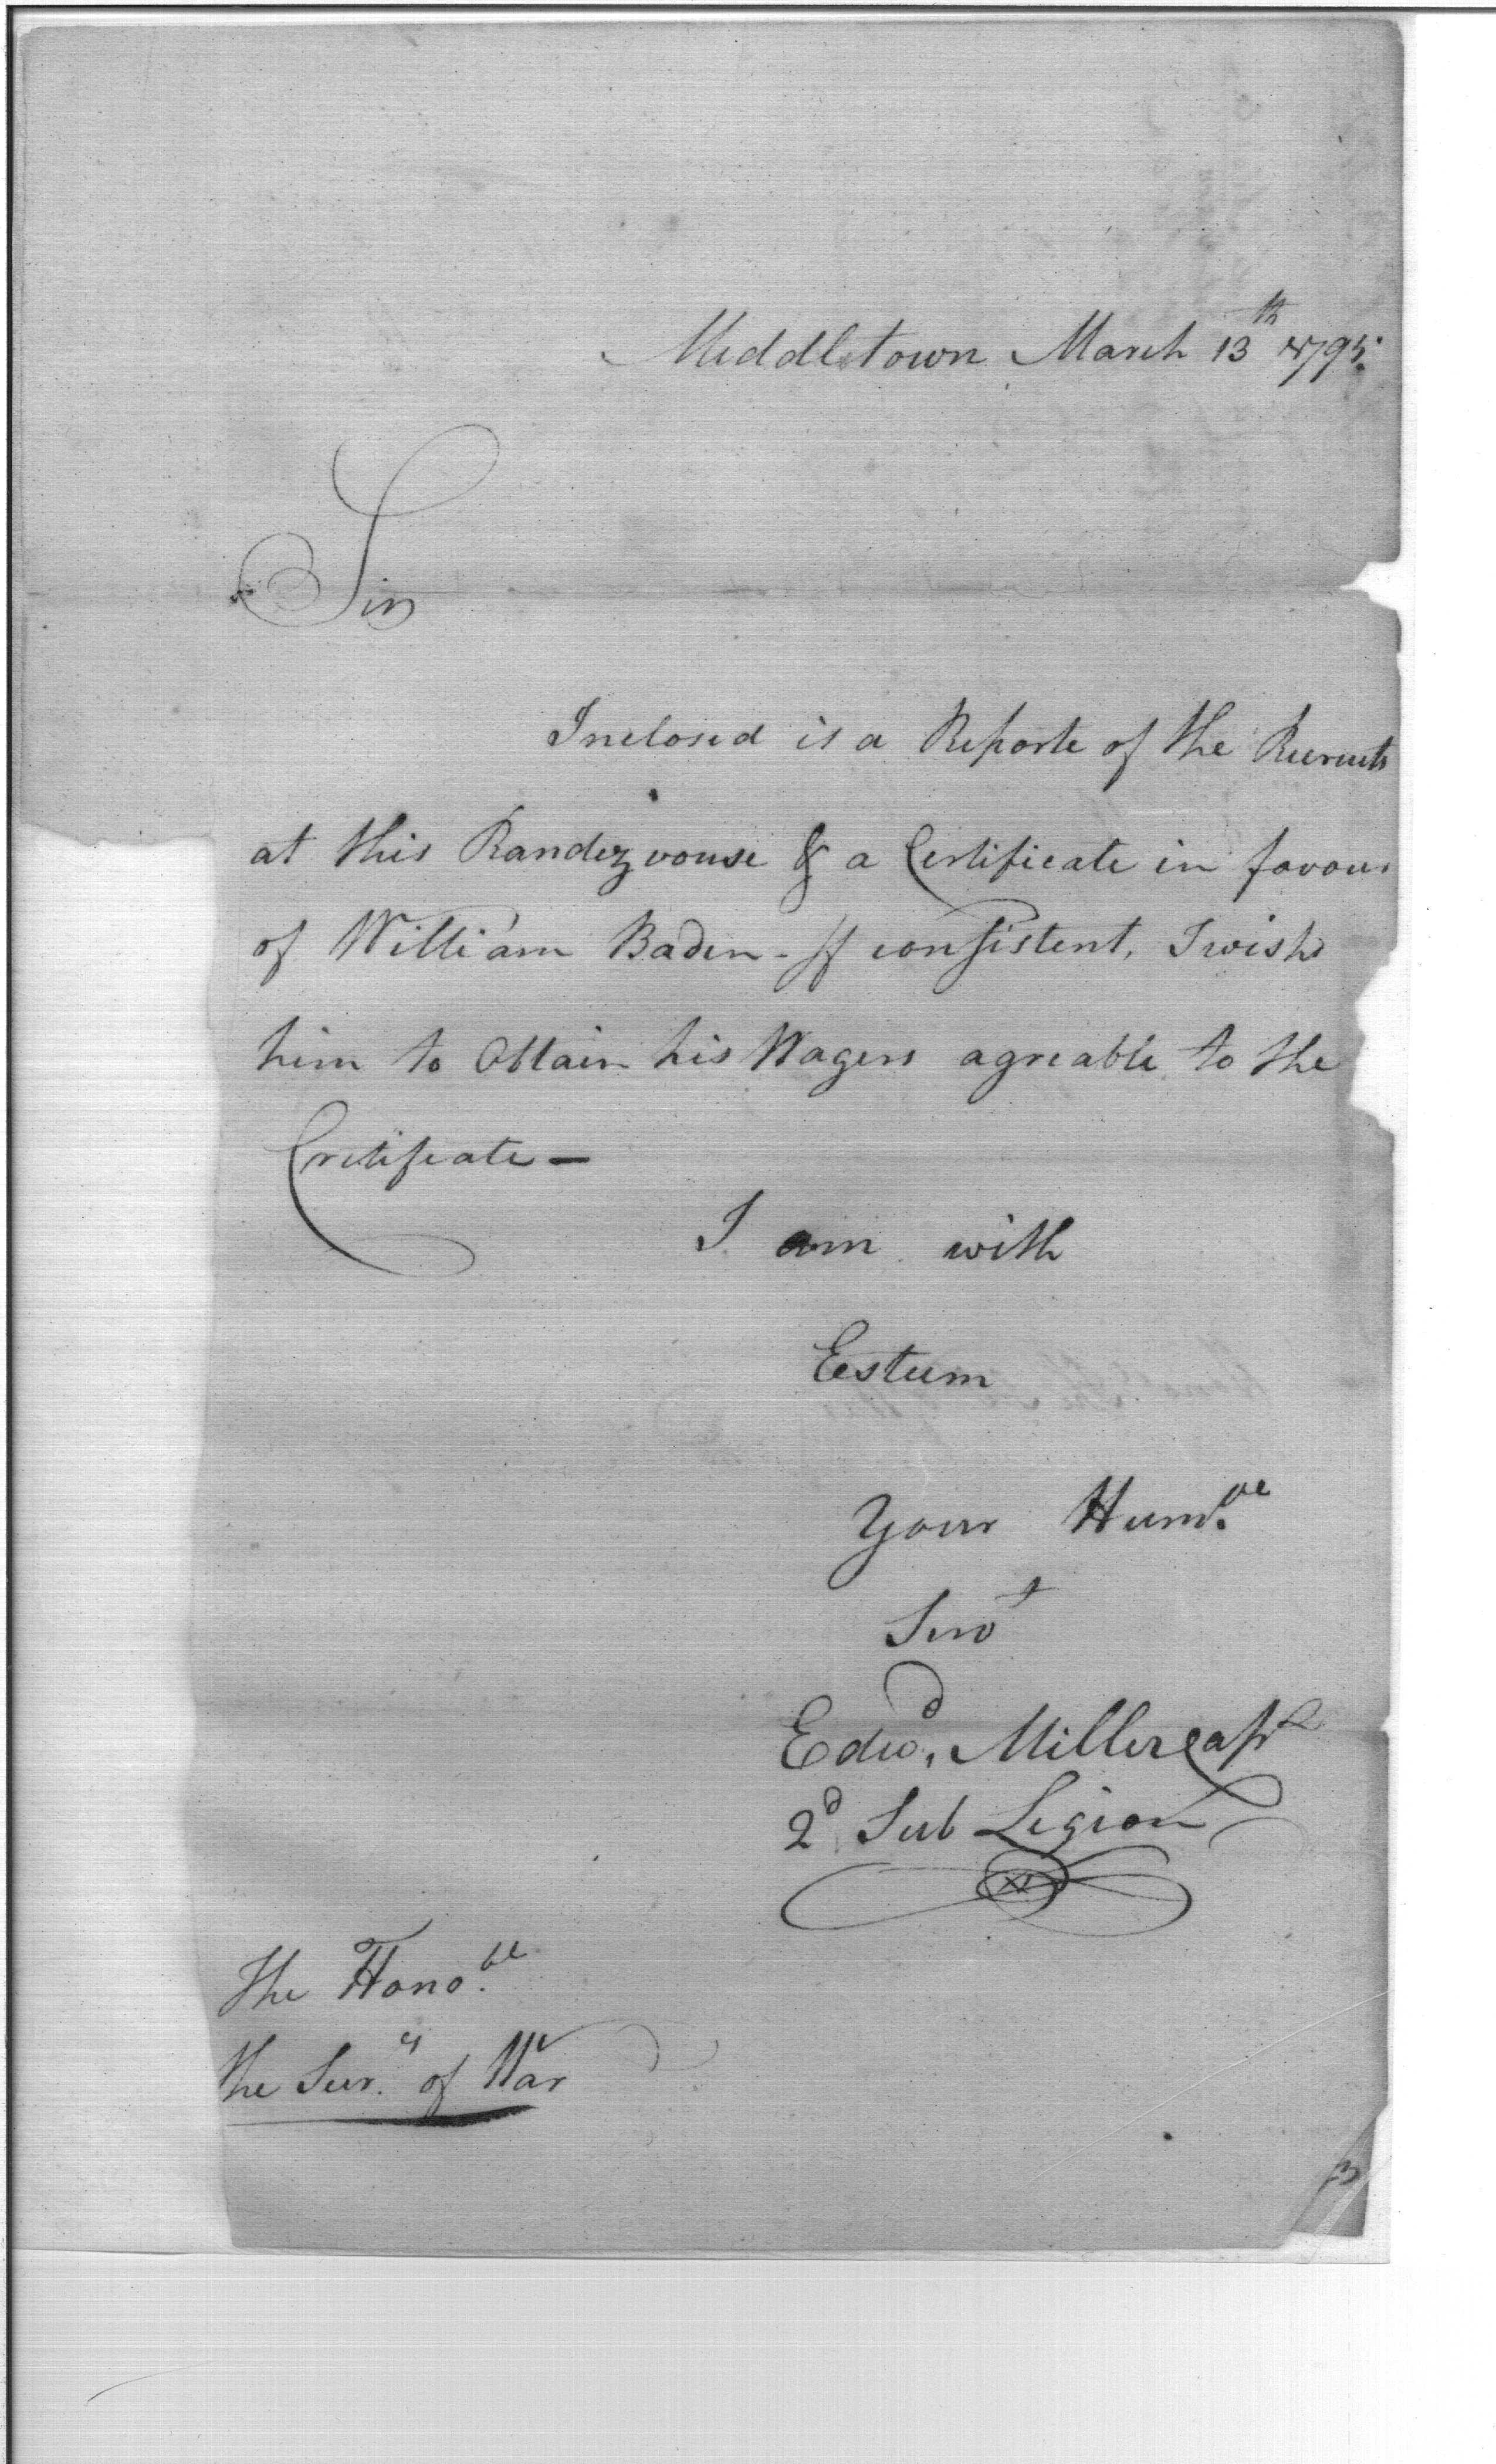 Middletown March 13th 1795.
Sir
Inclosed is a Reporte of the Recruits
at this Randezvouse & a Certificate in favour
of William Baden - If consistent, I wish
him to Obtain his Wagers agreable to the
Certificate —
I am with
Esteem
Your Humble
Servt
Edwd. Miller Capt
2d Sub Legion
The Honoble
the Secry of War